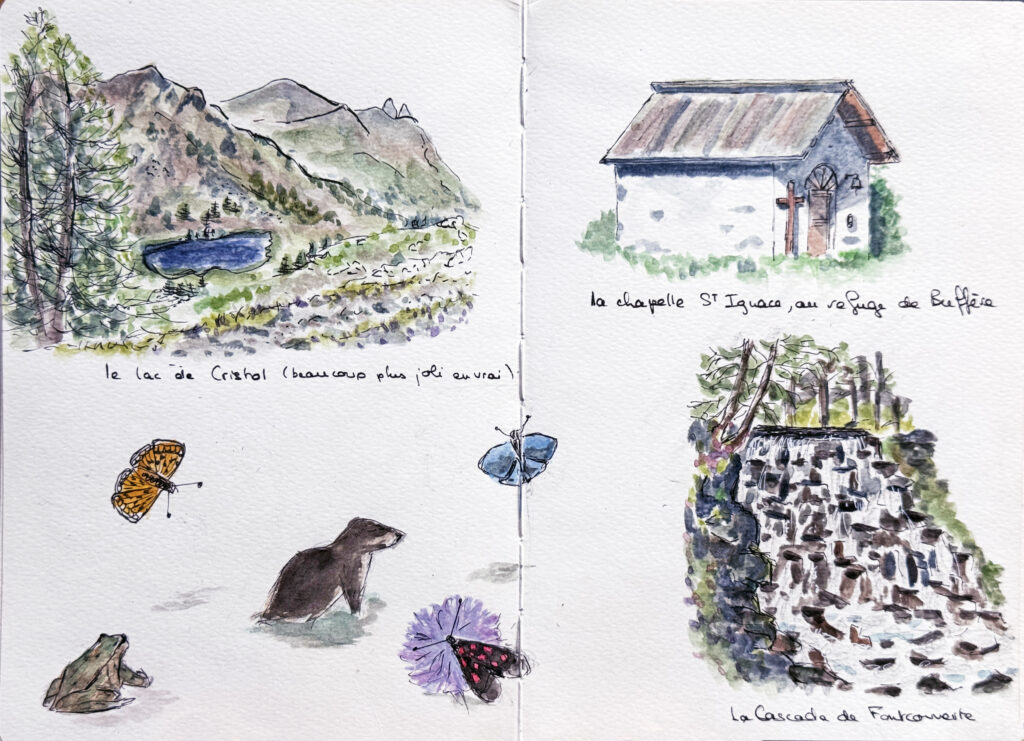 le lac de Cristol (beaucoup plus joli en vrai)
la chapelle St Ignace, au refuge de Buffère
La Cascade de Fontcouverte